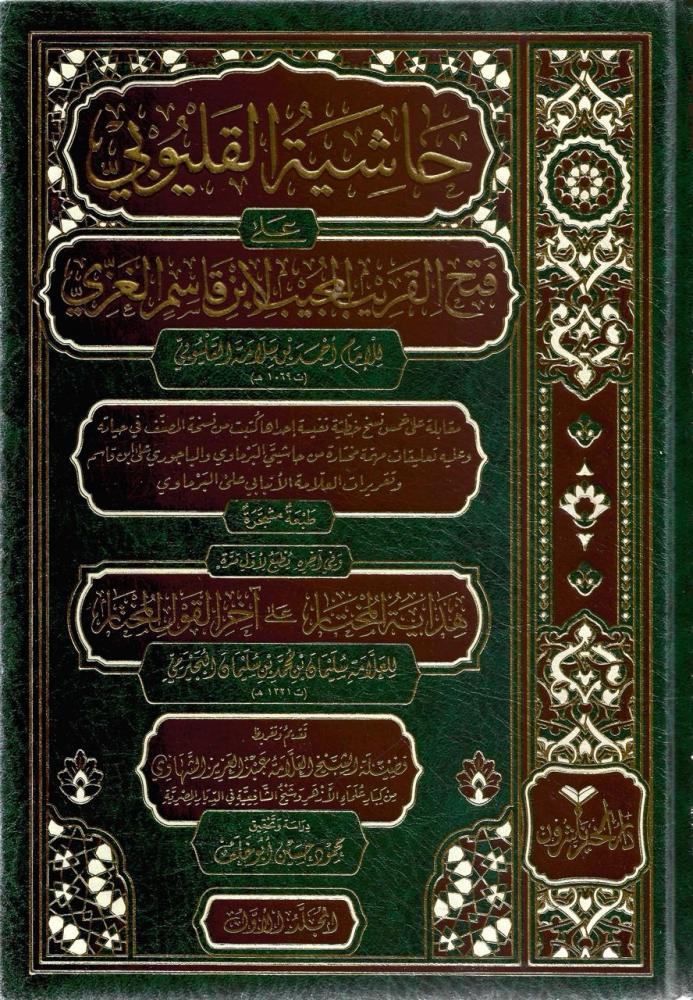 حَاشِيَةُ القَليُوبيِّ
عَلىٰ
فَتحِ القَريبِ المُجيبِ لابْنِ قَاسِمِ الغَزِّيِّ
للإمَام أحمَد بن سَلامَة القَليُوبيّ
(ت ١٠٦٩ هـ)
مقابلة على خمس نسخ خطية نفيسة إحداها كُتبت من نسخة المصنّف في حياته
وعليه تعليقات مهمّة مختارة من حاشيتي البَرماوي والباجوري على ابن قاسم
وتقريرات العلّامة الأنبابي على البَرماوي
طَبعَةٌ مُشَجَّرَةٌ
وفي آخره يُطبَع لأوَّل مَرَّة
هِدَايَةُ المُختَار عَلىٰ آخِرِ القَولِ المُختَارِ
للعَلَّامَة سُليمَان بْن مُحمَّد بْن سُليمَان البُجَيرَميّ
(ت ١٢٢١ هـ)
تقديم وتقريظ
فضيلة الشيخ العَلَّامَة عَبد العَزيز الشَّهَاوي
من كبَار عُلمَاء الأزهَر وشيخ الشَّافعيَّة في الديَار المِصريَّة
دراسَة وتحقيق
محمُود حسَين أبو خلف
المُجَلَّد الأوَّل
ناشرون